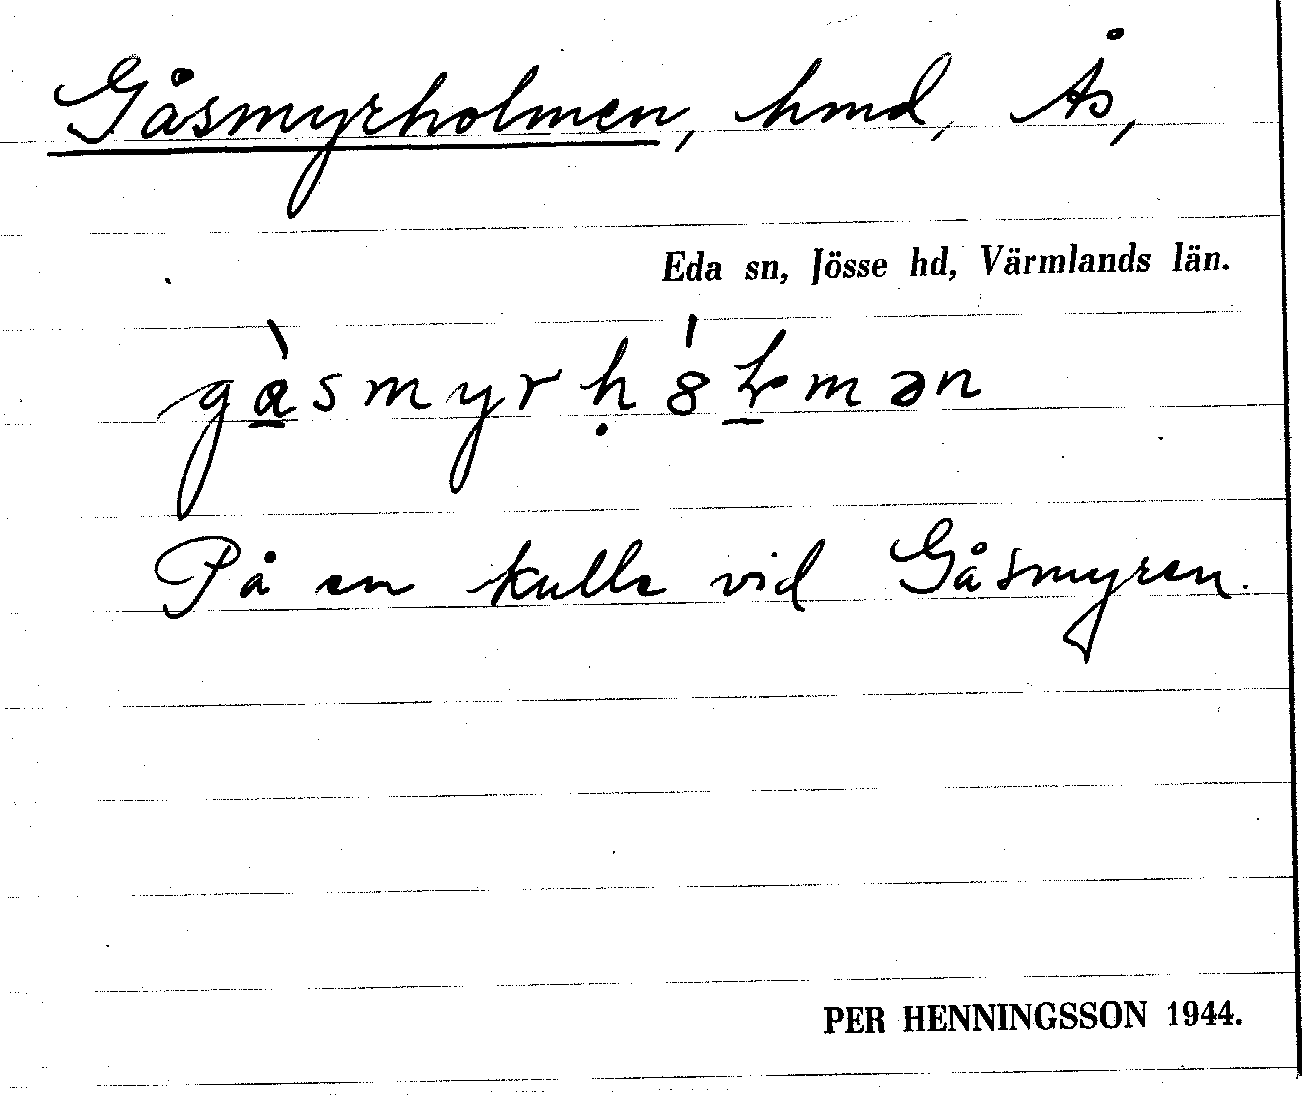 Gåsmyrholmen, hmd, Ås,
Eda sn, Jösse hd, Värmlands län.
På en kulle vid Gåsmyren.
PER HENNINGSSON 1944.